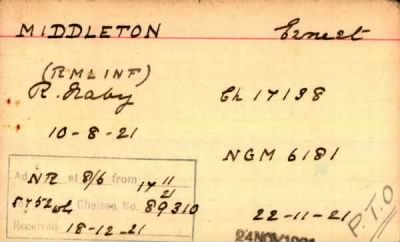 MIDDLETON Ernest
(RMLINF)
R. Navy Ch 17198
10-8-21
NGM 6181
Ad at 8/6 from 17 11/21
NR
Chelsea No. 89310
Received 18-12-21
22-11-21
24 NOV 1921
P.T.O